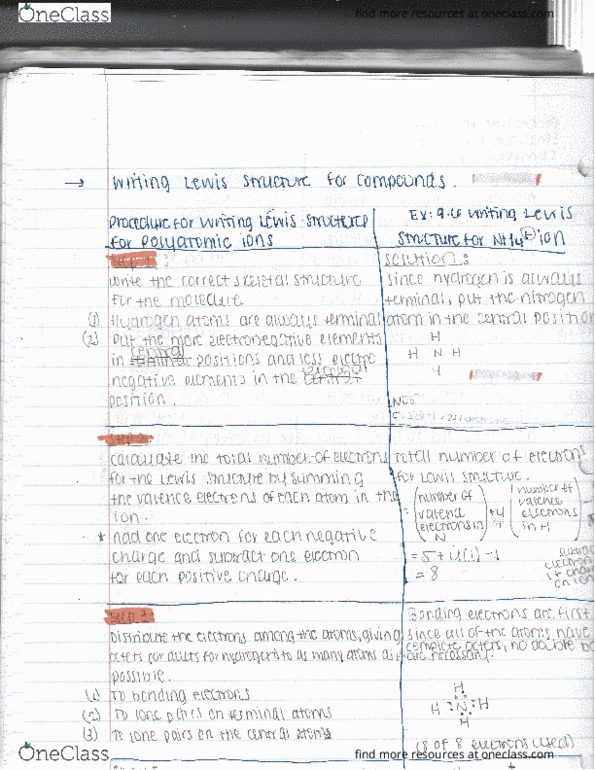 OneClass
find more resources at oneclass.com
→ Writing Lewis Structure for Compounds.
Procedure for Writing Lewis Structures
for Polyatomic ions
Ex: 9.6 Writing Lewis
Structure for NH4 + ion
Step 1:
Write the correct skeletal structure
for the molecule.
(1) Hydrogen atoms are always terminal
(2) Put the more electronegative elements
central
in terminal positions and less electro
negative elements in the central
terminal
position.
Solution:
since hydrogen is always
terminal, put the nitrogen
atom in the central position
H
H N H
H
NOTE
Step 2
Calculate the total number of electrons
for the Lewis structure by summing
the valence electrons of each atom in the
ion.
* Add one electron for each negative
charge and subtract one electron
for each positive charge.
Total number of electron
for Lewis structure.
= (number of valence electrons in N) + 4 (number of valence electrons in H)
= 5 + 4(1) - 1
= 8
Step 3:
Distribute the electrons among the atoms, giving
octets (or duets for hydrogen) to as many atoms as
possible.
(1) To bonding electrons
(2) To lone pairs on terminal atoms
(3) To lone pairs on the central atoms
Bonding electrons are first
since all of the atoms have
complete octets, no double bo
are necessary.
H
H : N : H
H
(8 of 8 electrons used)
OneClass
find more resources at oneclass.com